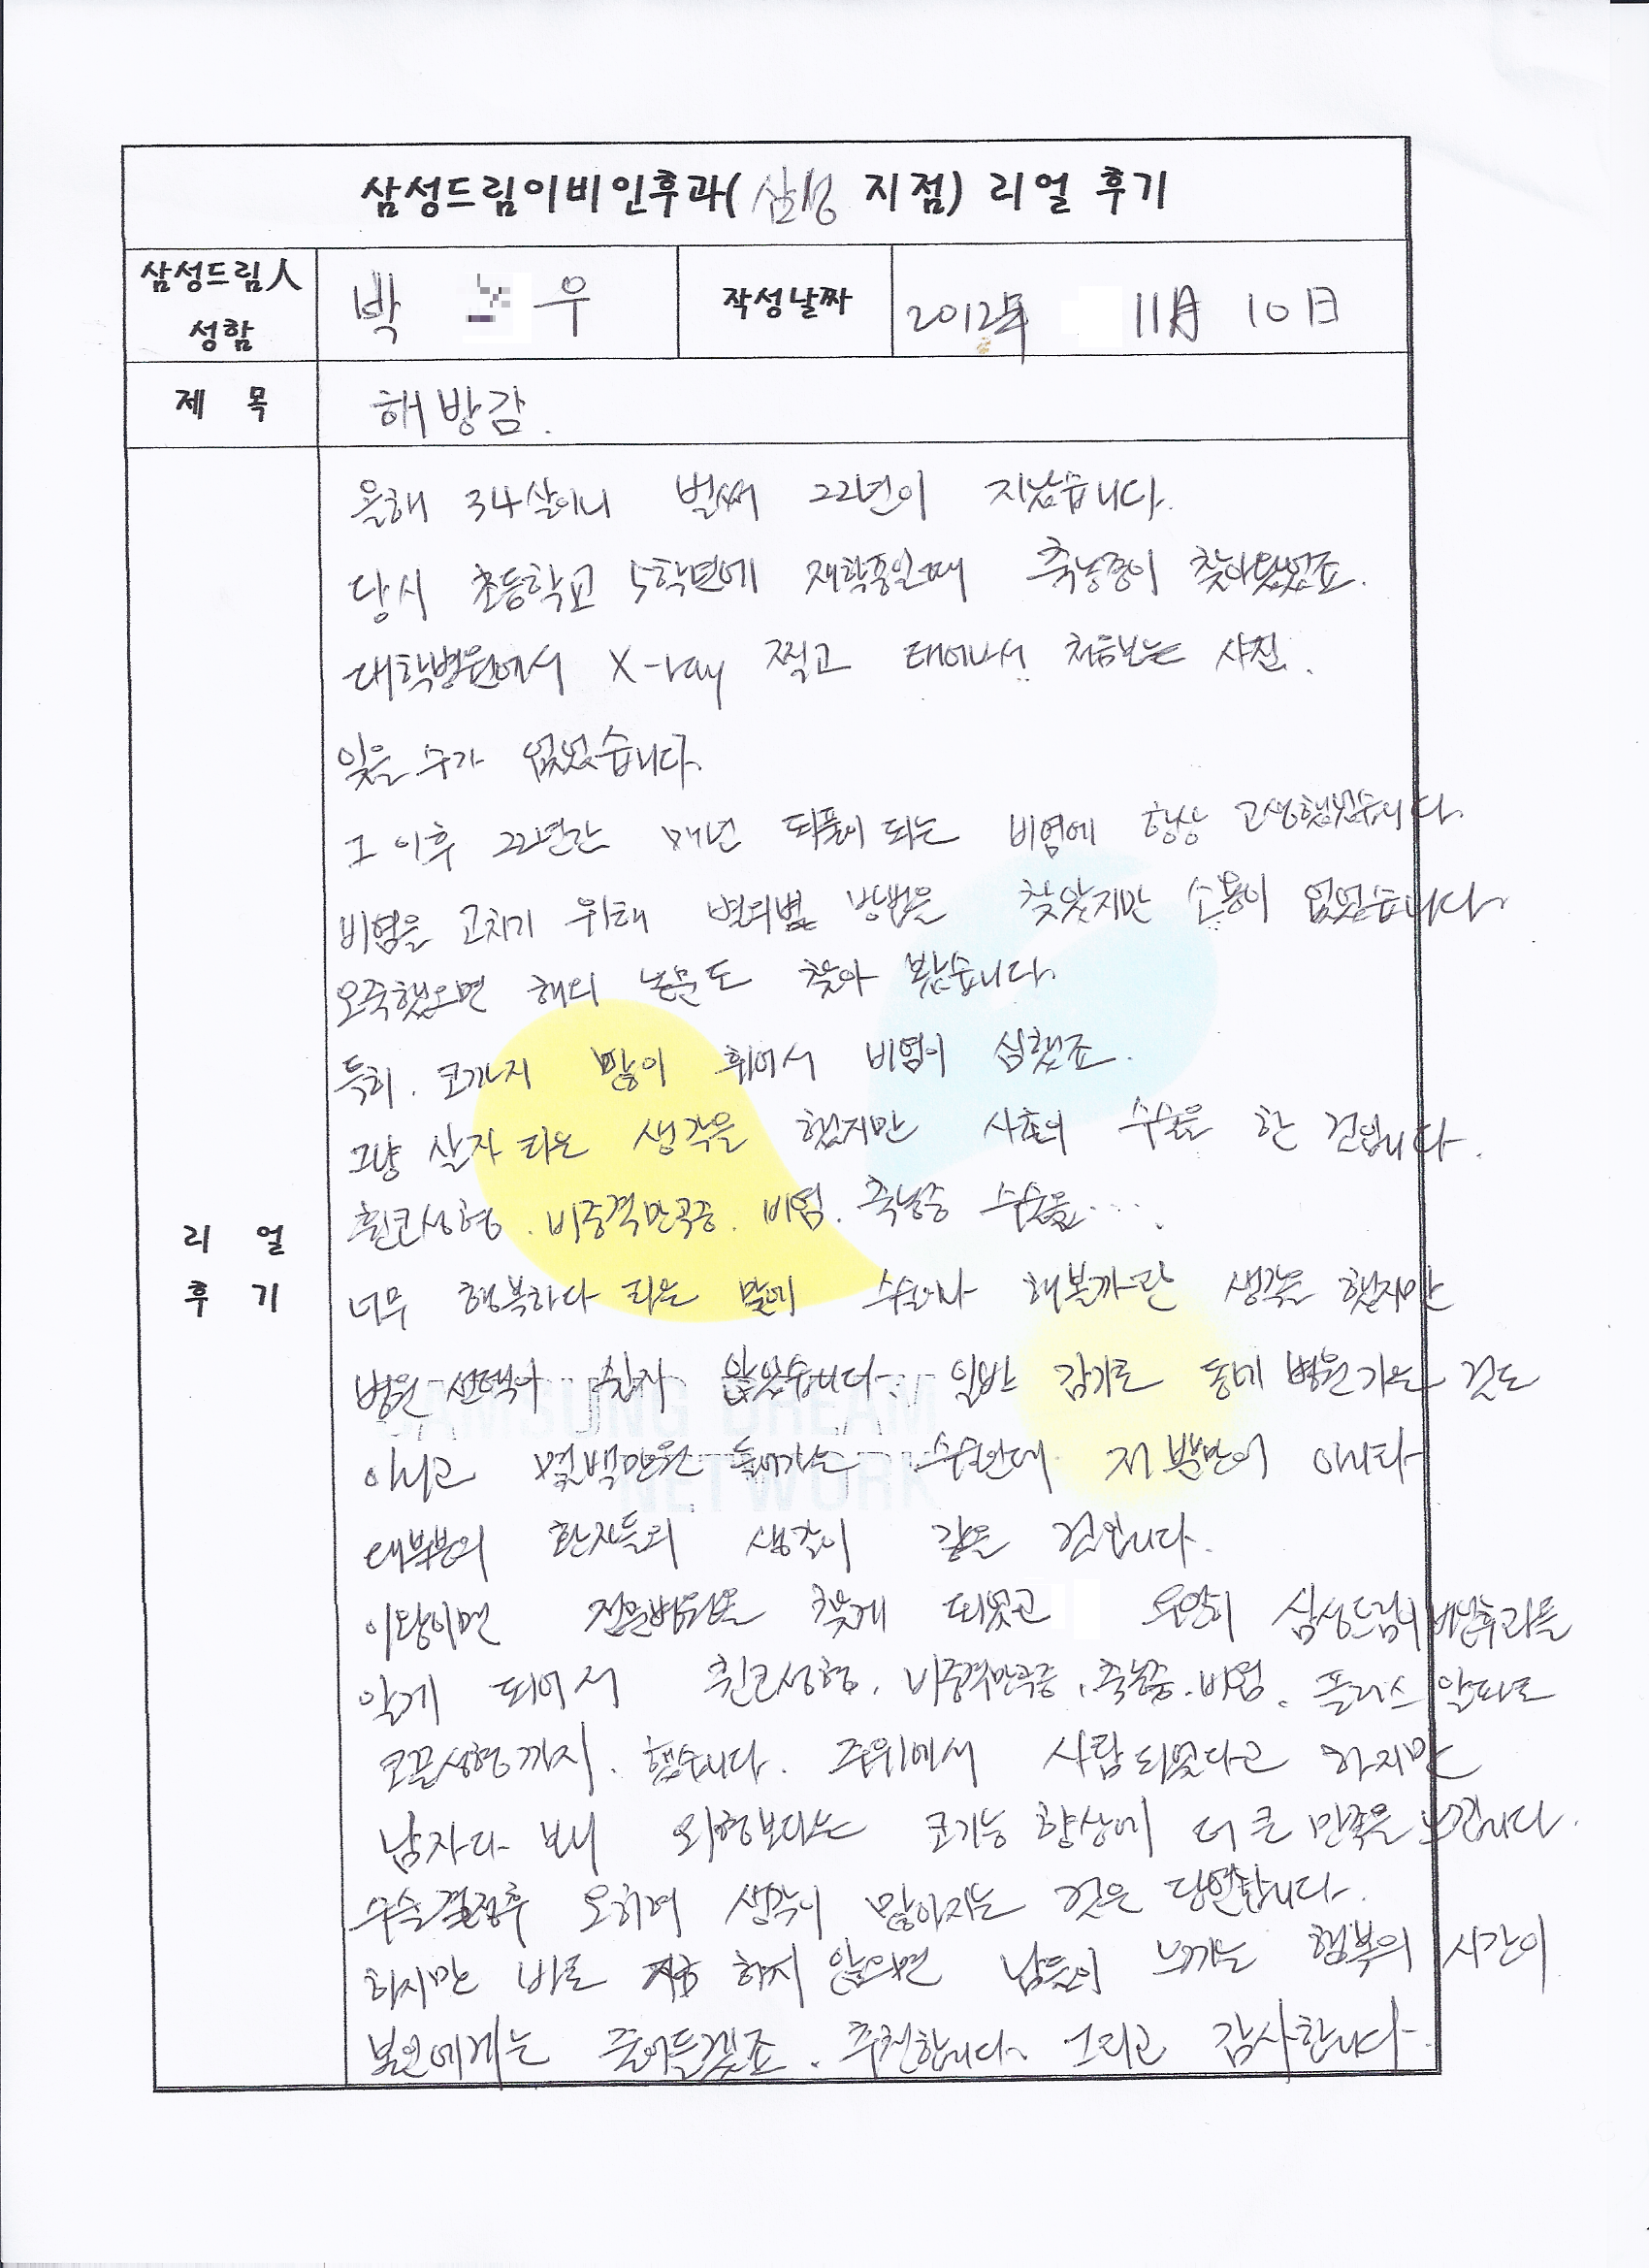 삼성드림이비인후과(삼성 지점) 리얼 후기
삼성드림人
성함
박 우
작성날짜
2012年 11月 10日
제 목
해방감.
올해 34살이니 벌써 22년이 지났습니다.
당시 초등학교 5학년에 재학중일때 축농증이 찾아왔었죠.
대학병원에서 X-ray 찍고 태어나서 처음보는 사진.
잊을 수가 없었습니다.
그 이후 22년간 매년 되풀이 되는 비염에 항상 고생했었습니다.
비염을 고치기 위해 별의별 방법을 찾았지만 소용이 없었습니다
오죽했으면 해외 논문도 찾아 봤습니다.
특히. 코까지 많이 휘어서 비염이 심했죠.
그냥 살자 라는 생각을 했지만 사촌이 수술을 한 겁입니다.
휜코성형. 비중격만곡증. 비염. 축농증 수술을....
너무 행복하다 라는 말에 수술이나 해볼까란 생각을 했지만
병원 선택이 쉽지 않았습니다. 일반 감기로 동네 병원가는 것도
아니고 몇백만원 들어가는 수술인데 저 뿐만이 아니라
대부분의 환자들의 생각이 같을 겁입니다.
이왕이면 전문병원을 찾게 되었고 우연히 삼성드림이비인후과를
알게 되어서 휜코성형. 비중격만곡증. 축농증. 비염. 플러스 알파로
코끝성형까지. 했습니다. 주위에서 사람되었다고 하지만
남자다 보니 외형보다는 코기능 향상에 더 큰 만족을 느낍니다.
수술결정후 오히려 생각이 많아지는 것은 당연합니다.
하지만 바로 지금 하지 않으면 남들이 느끼는 행복의 시간이
본인에게는 줄어들겠죠. 추천합니다. 그리고 감사합니다.
리 얼
후 기
SAMSUNG DREAM
NETWORK